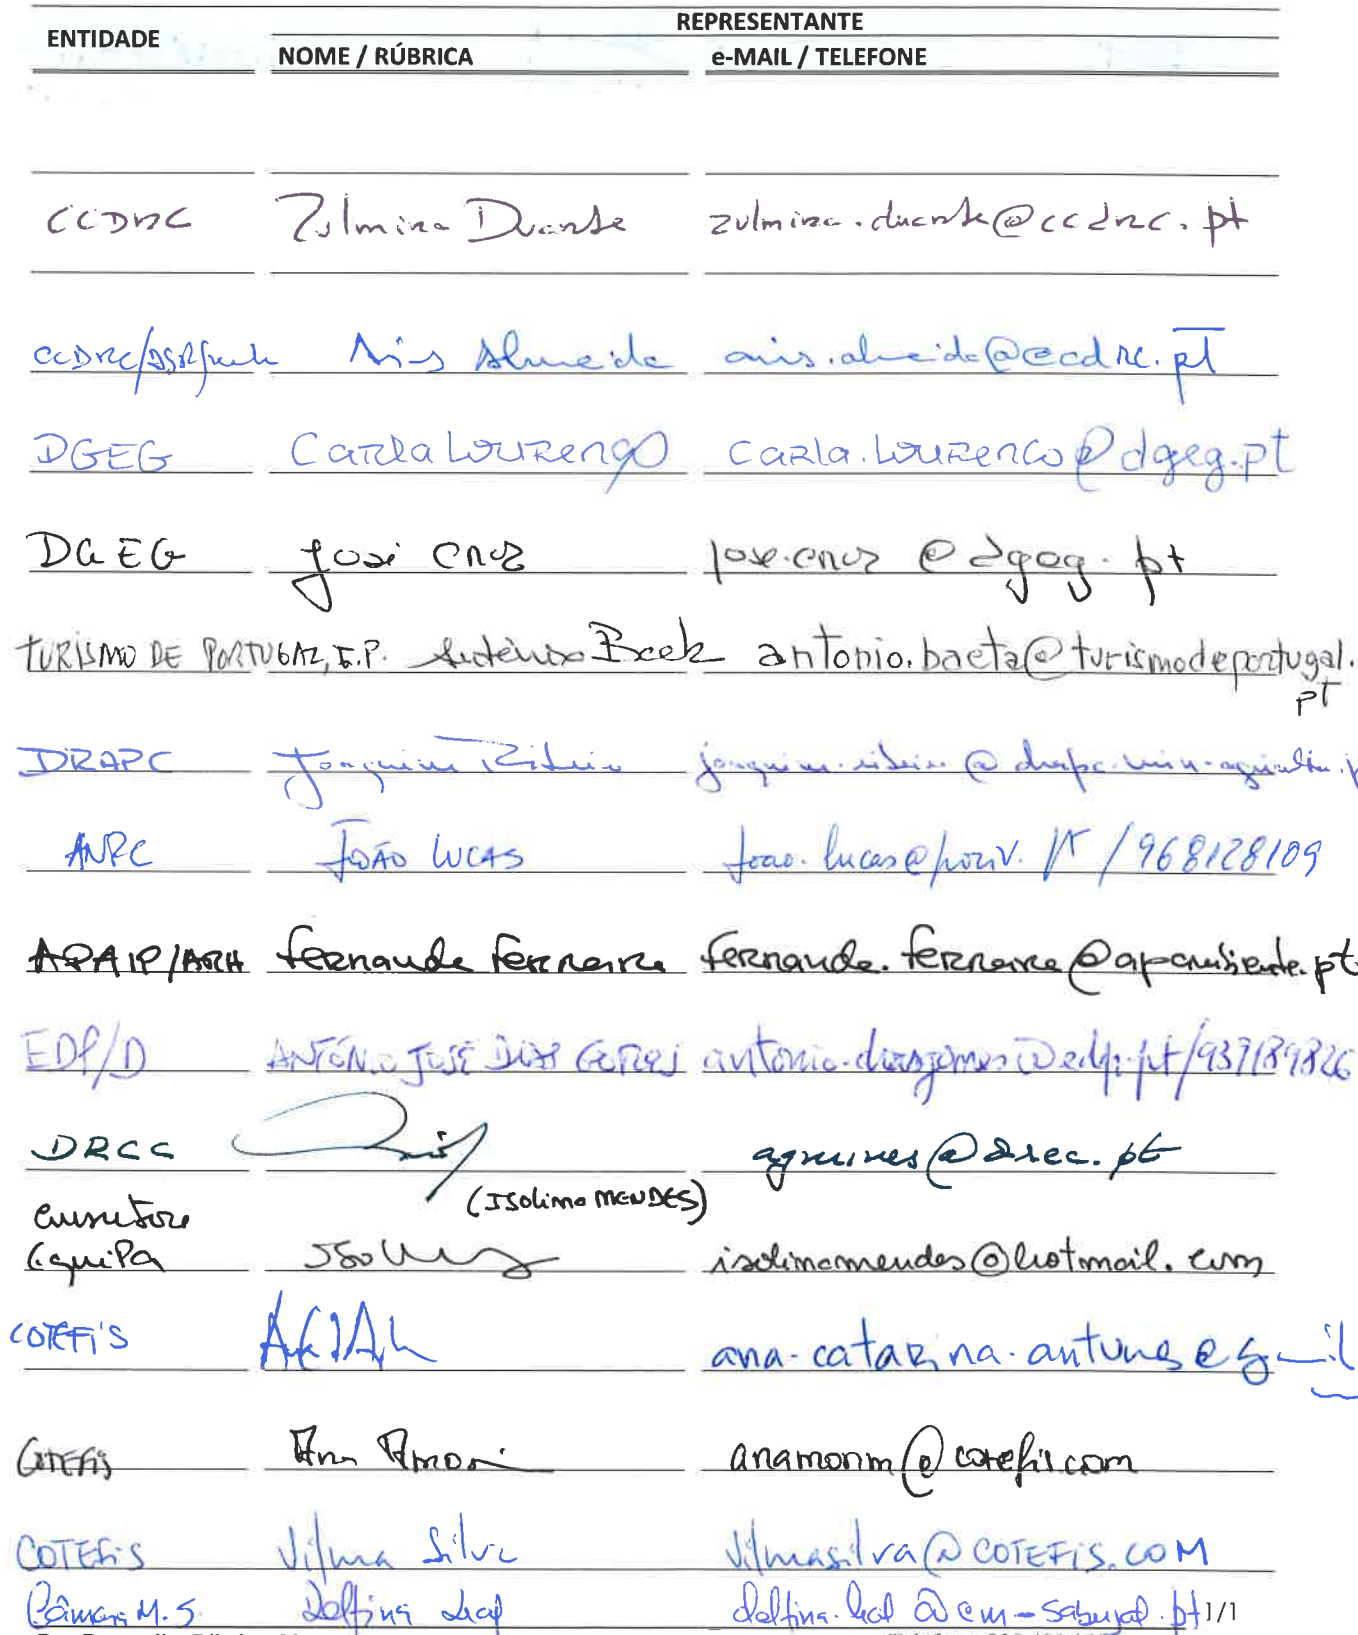 ENTIDADE
REPRESENTANTE
NOME / RÚBRICA e-MAIL / TELEFONE
CCDRC Zulmira Duarte zulmira.duarte@ccdrc.pt
CCDRC/DSR/ Almeida almeida@ccdrc.pt
DGEG Carla Lourenço carla.lourenco@dgeg.pt
DGEG José Cruz jose.cruz@dgeg.pt
TURISMO DE PORTUGAL, I.P. António Baeta antonio.baeta@turismodeportugal.
pt
DRAPC Joaquim Ribeiro joaquim.ribeiro@drapc.min-agricultura.p
ANPC JOÃO LUCAS joao.lucas@prociv.pt / 968128109
APAIP/ARH Fernanda Ferreira fernanda.ferreira@apambiente.pt
EDP/D ANTÓNIO JOSÉ DIAS GOMES antonio.diasgomes@edp.pt/937189826
DRCC @drcc.pt
(Isolima MENDES)
consultora
Equipa isolimamendes@hotmail.com
COTEFIS ana.catarina.antunes@gmail
COTEFIS Ana Amorim anamorim@cotefis.com
COTEFIS Vilma Silva vilmasilva@COTEFIS.COM
Câmara M. S. Delfina Leal delfina.leal@cm-sabugal.pt 1/1